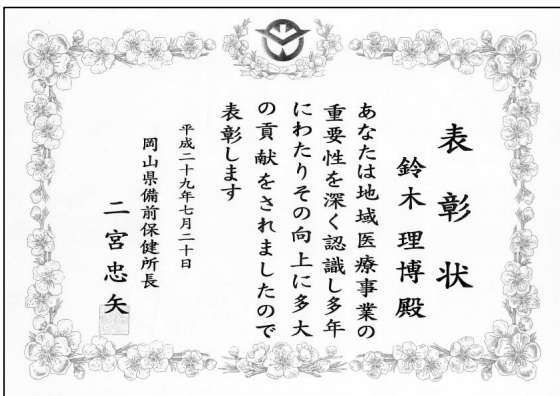 表彰状
鈴木理博殿
あなたは地域医療事業の
重要性を深く認識し多年
にわたりその向上に多大
の貢献をされましたので
表彰します
平成二十九年七月二十日
岡山県備前保健所長
二宮忠矢